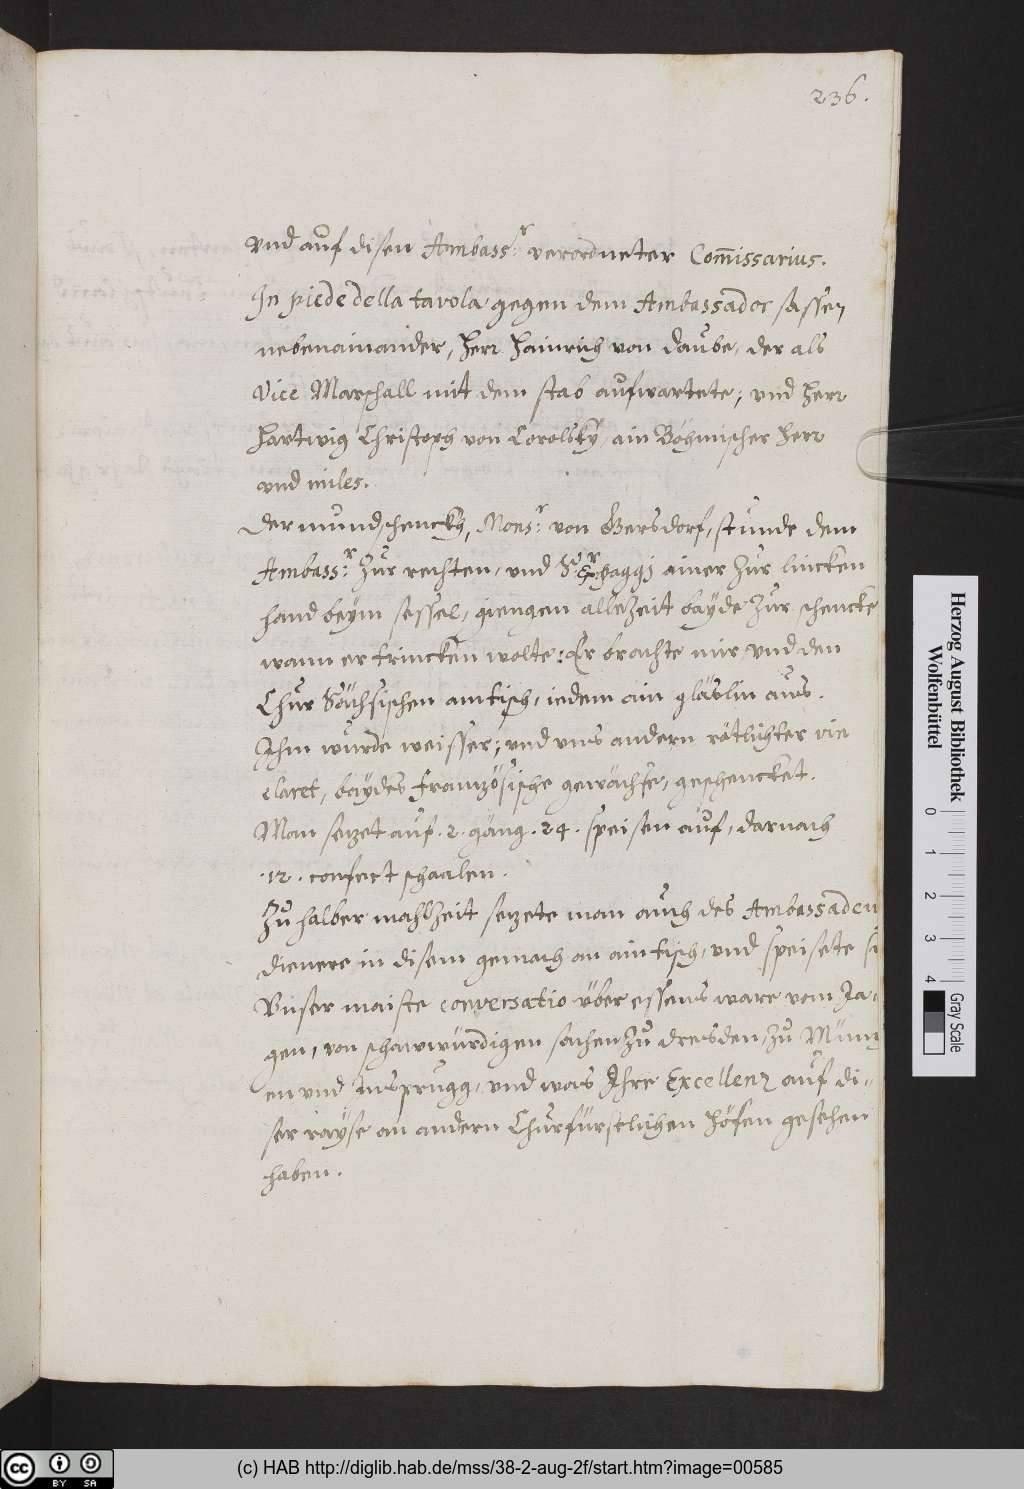 236.
vnd auf disen Ambass:r verordneter Com̄issarius.
In piede della tavola gegen dem Ambassador sassen
nebenainander, Herr Hainrich von Daube, der als
Vice Marschall mit dem stab aufwartete; vnd Herr
Hartwig Christoph von ain Böhmischer Herr
vnd miles.
Der mundschenckh, Mons:r von Gersdorf, stunde dem
Ambass:r zur rechten, vnd paggj ainer zur lincken
hand beym sessel, giengen allezeit bayde zur schencke
wann er trincken wolte: Er brachte mir vnd den
Chur Sächsischen am tisch, iedem ain gläslin aus.
Ihm wurde weisser; vnd vns andern rötlichter vin
claret, baydes Französische gewächse, geschencket.
Man sezet auf .2. gäng .24. speisen auf, darnach
.12. confect schaalen.
Zu halber mahlzeit sezete man auch des Ambassadeu
dienere in disem gemach an ain tisch, vnd speisete si
Vnser maiste conversatio über essens ware vom Ja-
gen, von schawwürdigen sachen zu Dresden, zu Münch
en vnd Insprugg, vnd was Ihre Excellenz auf di-
ser rayse an andern Churfürstlichen Höfen gesehen
haben.
Herzog August Bibliothek
Wolfenbüttel
0 1 2 3 4
Gray Scale
cc BY SA
(c) HAB http://diglib.hab.de/mss/38-2-aug-2f/start.htm?image=00585